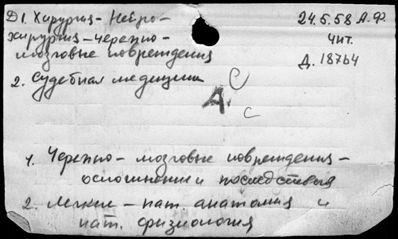 Д1. Хирургия - Нейро-
хирургия - черепно-
мозговые повреждения
2. Судебная медицина
24.5.58 А.Ф.
Чит.
Д. 18764
А. С
с
1. Черепно - мозговые повреждения -
осложнения и последствия
2. Легкие - пат. анатомия и
пат. физиология